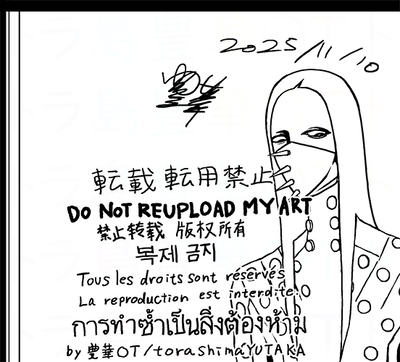 2025/11/10
豊華
転載 転用禁止
DO NOT REUPLOAD MY ART
禁止转载 版权所有
복제 금지
Tous les droits sont réservés
La reproduction est interdite.
การทำซ้ำเป็นสิ่งต้องห้าม
by 豊華OT/torashimaYUTAKA